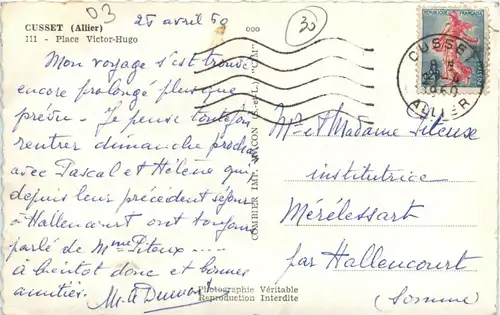 CUSSET (Allier)
III - Place Victor-Hugo
03
25 avril 60
30
Mon voyage s'est trouvé
encore prolongé plus que
prévu. Je pense toutefois
rentrer dimanche prochain
avec Pascal et Hélène qui,
depuis leur précédent séjour
à Hallencourt ont toujours
parlé de Mme Piteux ....
à bientôt donc et bonnes
amitiés.
COMBIER IMP. MACON (S.-et-L.) "CIM"
Photographie Véritable
Reproduction Interdite
REPUBLIQUE FRANÇAISE
POSTES
CUSSET
1960
ALLIER
Mr et Madame Piteux
institutrice
Mérélessart
par Hallencourt
(Somme)